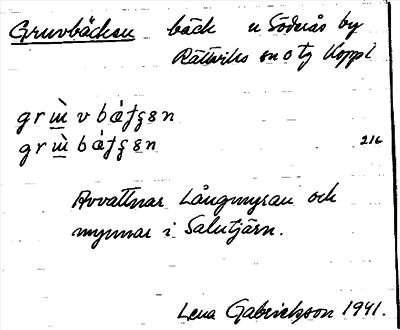 Gruvbäcken bäck n Söderås by
Rättviks sn o tg Koppl
216
Avvattnar Långmyran och
mynnar i Salutjärn.
Lena Gabrielsson 1941.